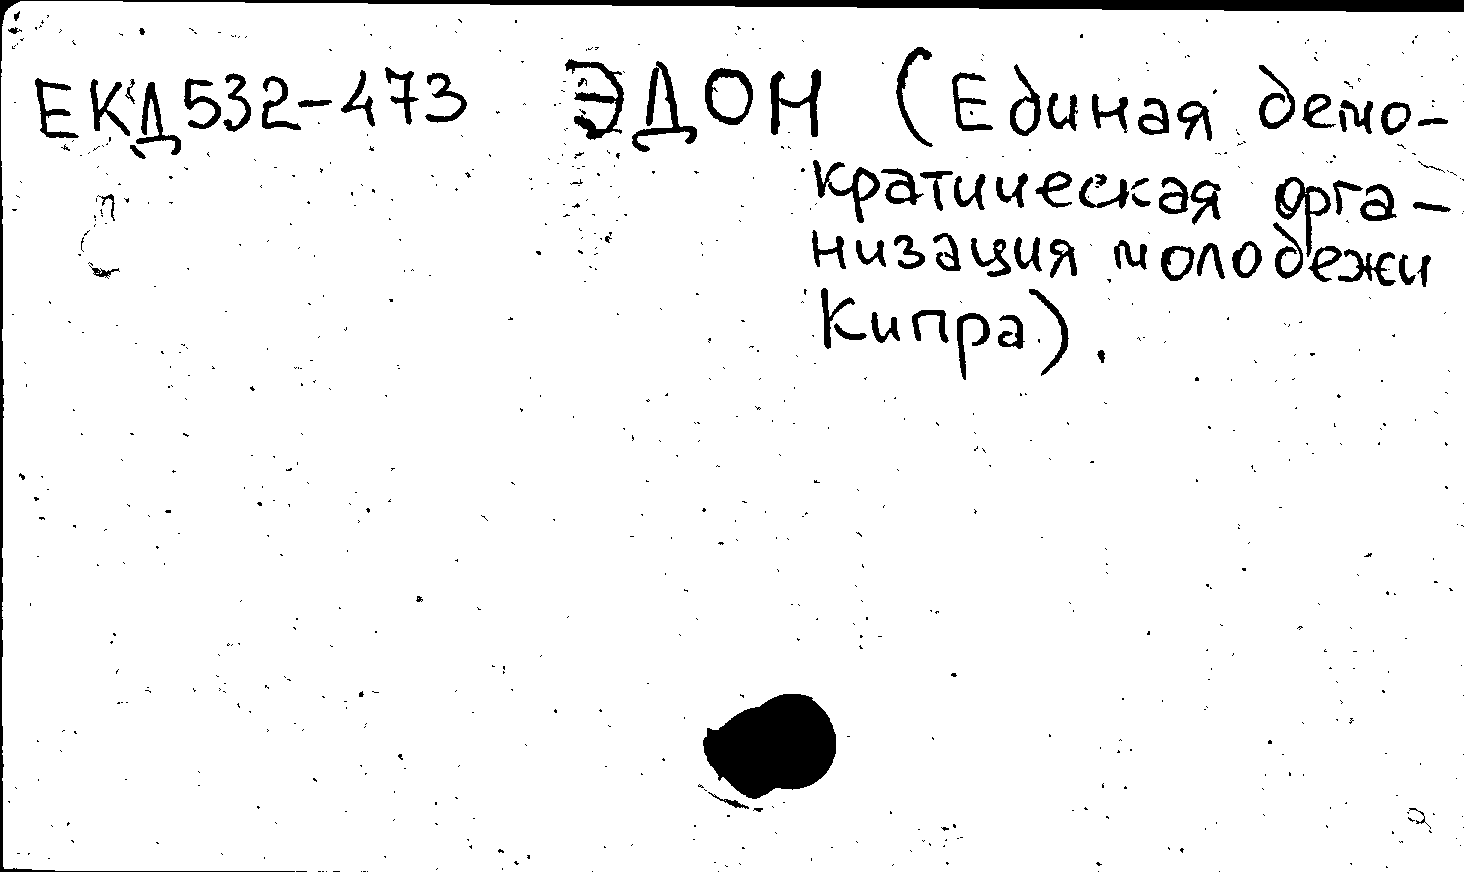 ЕКД532-473 ЭДОН (Единая демо-
кратическая орга-
низация молодежи
Кипра).